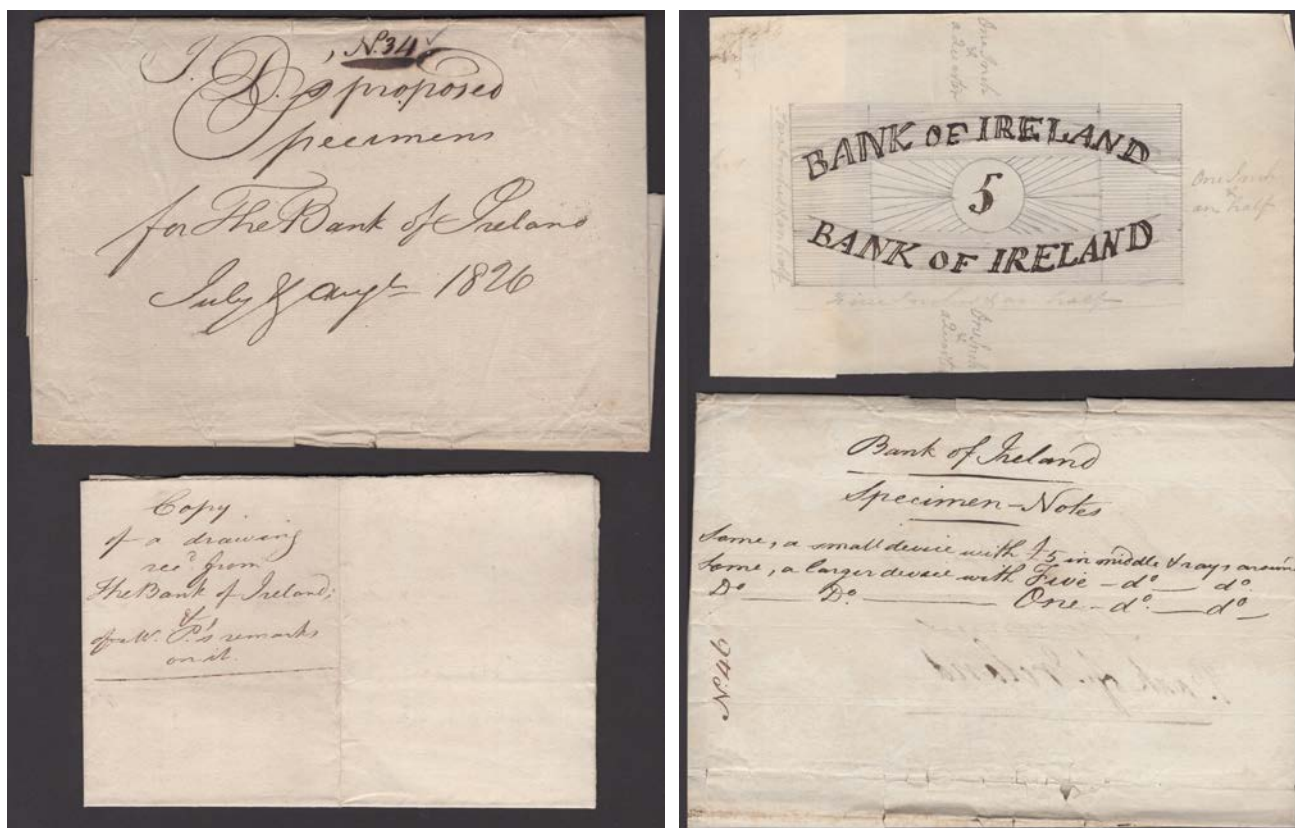 Nº. 34
J. D.'s proposed
Specimens
for The Bank of Ireland
July & Augt. 1826
Copy
of a drawing
recd. from
The Bank of Ireland;
&
of W. P.'s remarks
on it.
One Inch
&
a Quarter
BANK OF IRELAND
5
BANK OF IRELAND
One Inch
&
an half
an half
One Inch
&
a Quarter
Bank of Ireland
Specimen-Notes
Some, a small device with £5 in middle & rays around
Some, a larger device with Five - do. do.
Do. Do. One - do. do.
Nº. 46
Bank of Ireland